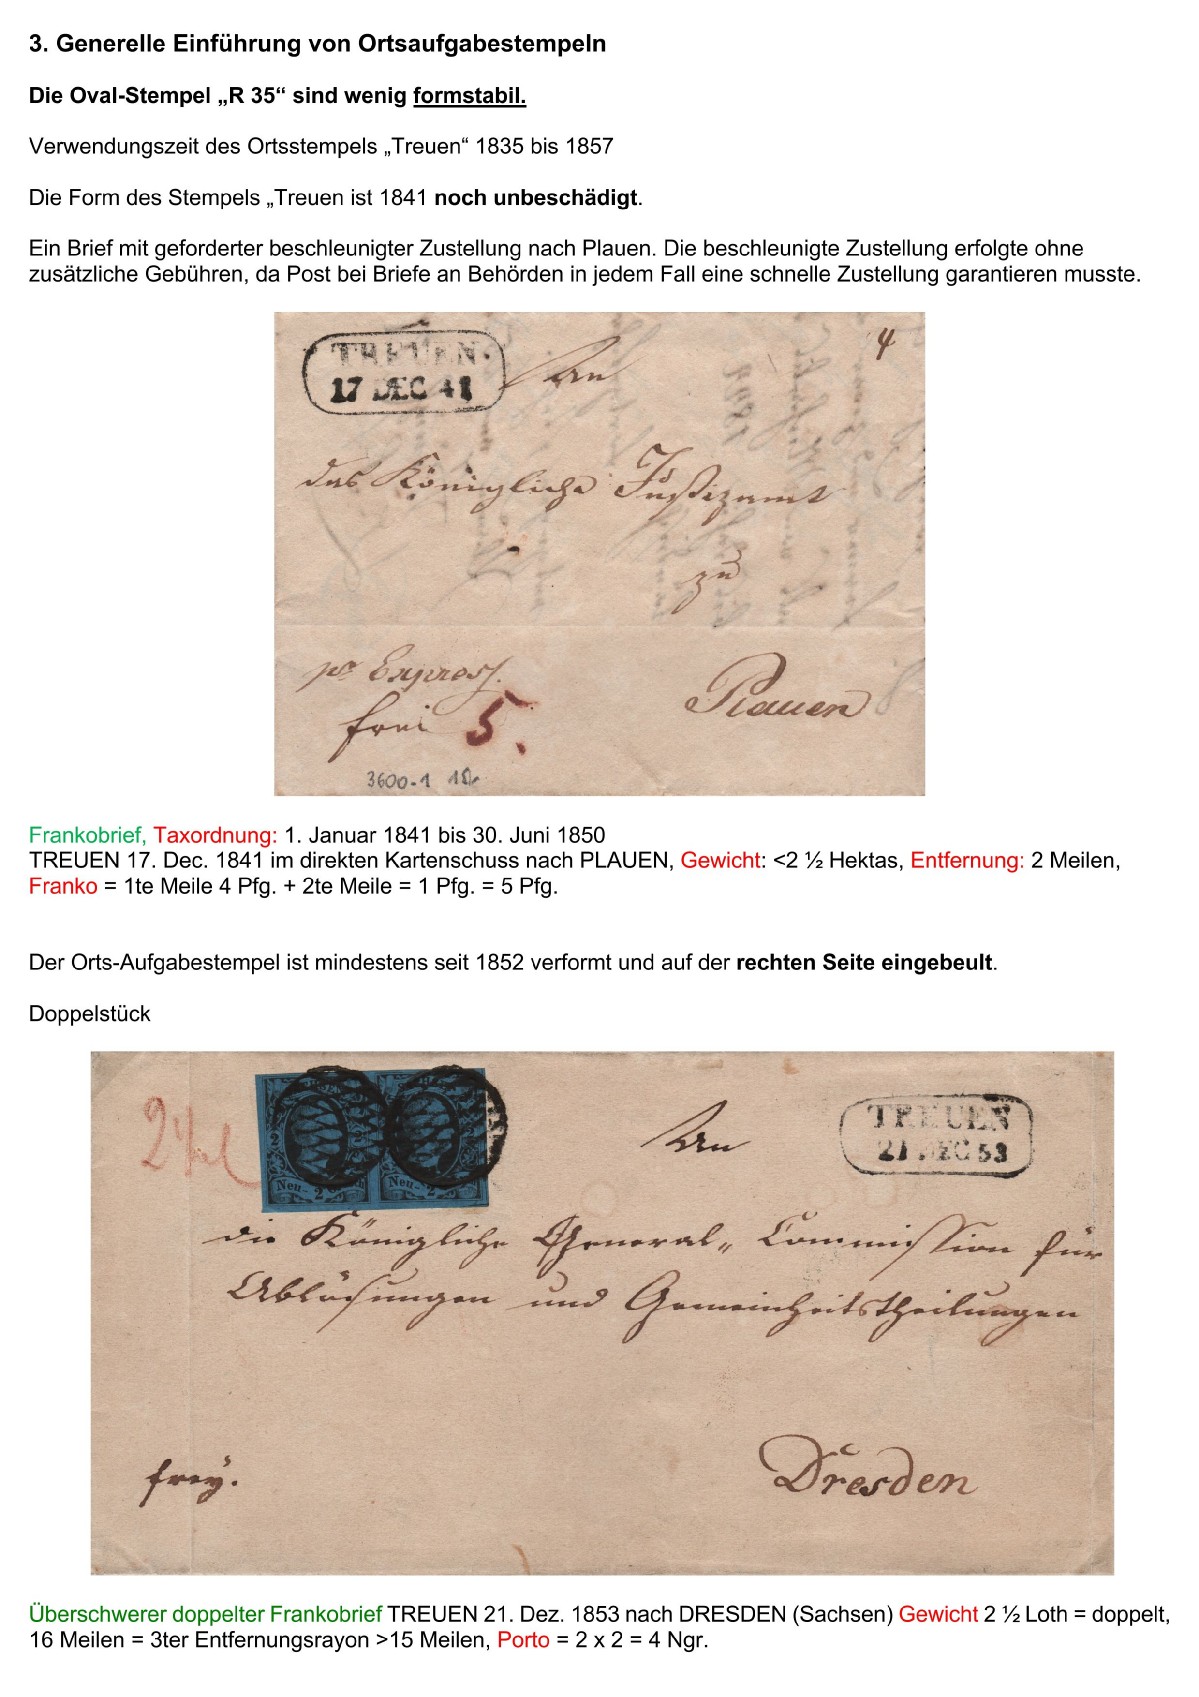 3. Generelle Einführung von Ortsaufgabestempeln
Die Oval-Stempel „R 35“ sind wenig formstabil.
Verwendungszeit des Ortsstempels „Treuen“ 1835 bis 1857
Die Form des Stempels „Treuen ist 1841 noch unbeschädigt.
Ein Brief mit geforderter beschleunigter Zustellung nach Plauen. Die beschleunigte Zustellung erfolgte ohne
zusätzliche Gebühren, da Post bei Briefe an Behörden in jedem Fall eine schnelle Zustellung garantieren musste.
4
TREUEN.
17 DEC 41
An
das Königliche Justizamt
zu
pr Express.
Plauen
frei 5.
3600-1
Frankobrief, Taxordnung: 1. Januar 1841 bis 30. Juni 1850
TREUEN 17. Dec. 1841 im direkten Kartenschuss nach PLAUEN, Gewicht: <2 ½ Hektas, Entfernung: 2 Meilen,
Franko = 1te Meile 4 Pfg. + 2te Meile = 1 Pfg. = 5 Pfg.
Der Orts-Aufgabestempel ist mindestens seit 1852 verformt und auf der rechten Seite eingebeult.
Doppelstück
Neu- 2 Neu- 2
An
TREUEN
21 DEC 53
die Königliche General-Commission für
Ablösungen und Gemeinheitstheilungen
frey.
Dresden
Überschwerer doppelter Frankobrief TREUEN 21. Dez. 1853 nach DRESDEN (Sachsen) Gewicht 2 ½ Loth = doppelt,
16 Meilen = 3ter Entfernungsrayon >15 Meilen, Porto = 2 x 2 = 4 Ngr.